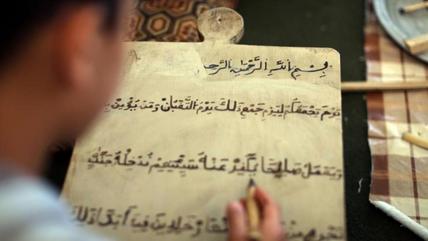 بِسْمِ اللَّهِ الرَّحْمَٰنِ الرَّحِيمِ
يَوْمَ يَجْمَعُكُمْ لِيَوْمِ الْجَمْعِ ذَٰلِكَ يَوْمُ التَّغَابُنِ وَمَنْ يُؤْمِنْ
وَيَعْمَلْ صَالِحًا نُكَفِّرْ عَنْهُ سَيِّئَاتِهِ نُدْخِلْهُ جَنَّاتٍ
خَالِدِينَ فِيهَا أَبَدًا ذَٰلِكَ